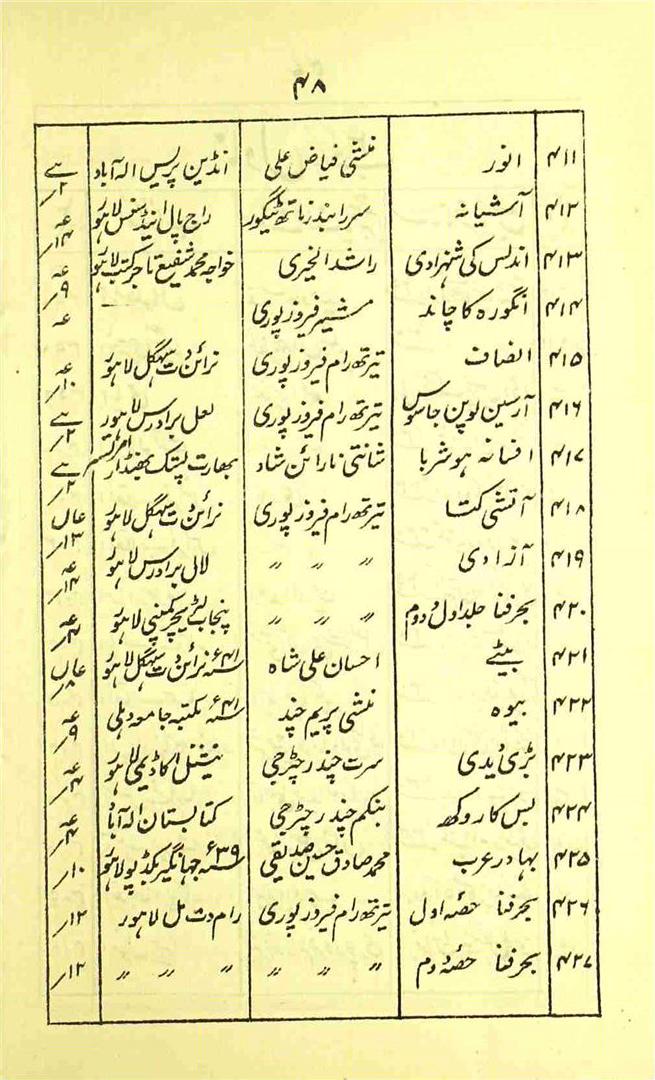 ۴۸
۴۱۱ انور منشی فیاض علی انڈین پریس الہ آباد ۲؍
۴۱۲ آشیانہ سر رابندر ناتھ ٹیگور راج پال اینڈ سنس لاہور ۱۴؍
۴۱۳ اندلس کی شہزادی راشد الخیری خواجہ محمد شفیع تاجر کتب لاہور ۹؍
۴۱۴ انگورہ کا چاند مشیر فیروز پوری
۴۱۵ انصاف تیرتھ رام فیروز پوری نرائن دت سہگل لاہور ۱۰؍
۴۱۶ آرسین لوپن جاسوس تیرتھ رام فیروز پوری لعل برادرس لاہور ۲؍
۴۱۷ افسانہ ہوشربا شانتی نارائن شاد بھارت پستک بھنڈار امرتسر ۲؍
۴۱۸ آتشی کتا تیرتھ رام فیروز پوری نرائن دت سہگل لاہور ۱۳؍
۴۱۹ آزادی 〃 〃 〃 لال برادرس لاہور ۱۴؍
۴۲۰ بحر فنا جلد اول و دوم 〃 〃 〃 پنجاب لٹریچر کمپنی لاہور ۴؍
۴۲۱ بیٹے احسان علی شاہ ۴۱ء نرائن دت سہگل لاہور ۸؍
۴۲۲ بیوہ منشی پریم چند ۴۱ء مکتبہ جامعہ دہلی ۹؍
۴۲۳ بڑی دیدی سرت چندر چٹرجی نیشنل اکاڈیمی لاہور ۴؍
۴۲۴ بس کا روکھ بنکم چندر چٹرجی کتابستان الہ آباد ۴؍
۴۲۵ بہادر عرب محمد صادق حسین صدیقی ۳۹ء جہانگیر بکڈپو لاہور ۱۰؍
۴۲۶ بحر فنا حصہ اول تیرتھ رام فیروز پوری رام دت مل لاہور ۱۲؍
۴۲۷ بحر فنا حصہ دوم 〃 〃 〃 〃 〃 〃 ۱۲؍